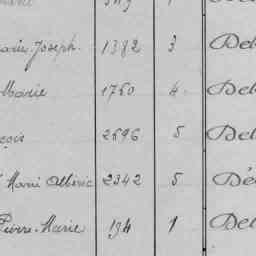 Marie-Joseph. 1382 3 Del
Marie 1750 4. Del
2696 5 Del
Marie Albéric 2342 5 Dé
Pierre-Marie 194 1 Del